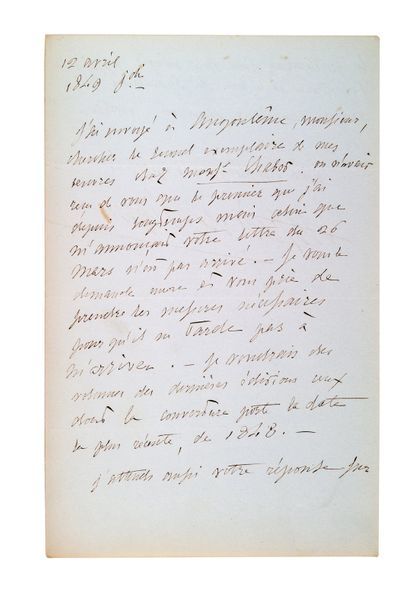 12 avril
1849
J'ai envoyé à Angoulême, monsieur,
chercher le second exemplaire de mes
œuvres chez Chabot. on n'avait
reçu de vous que le premier que j'ai
depuis longtemps mais celui que
m'annonçait votre lettre du 26
mars n'est pas arrivé. — Je vous le
demande encore et vous prie de
prendre les mesures nécessaires
pour qu'il ne tarde pas à
m'arriver. — Je voudrais des
volumes des dernières éditions ceux
dont la couverture porte la date
la plus récente, de 1848. —
j'attends aussi votre réponse sur